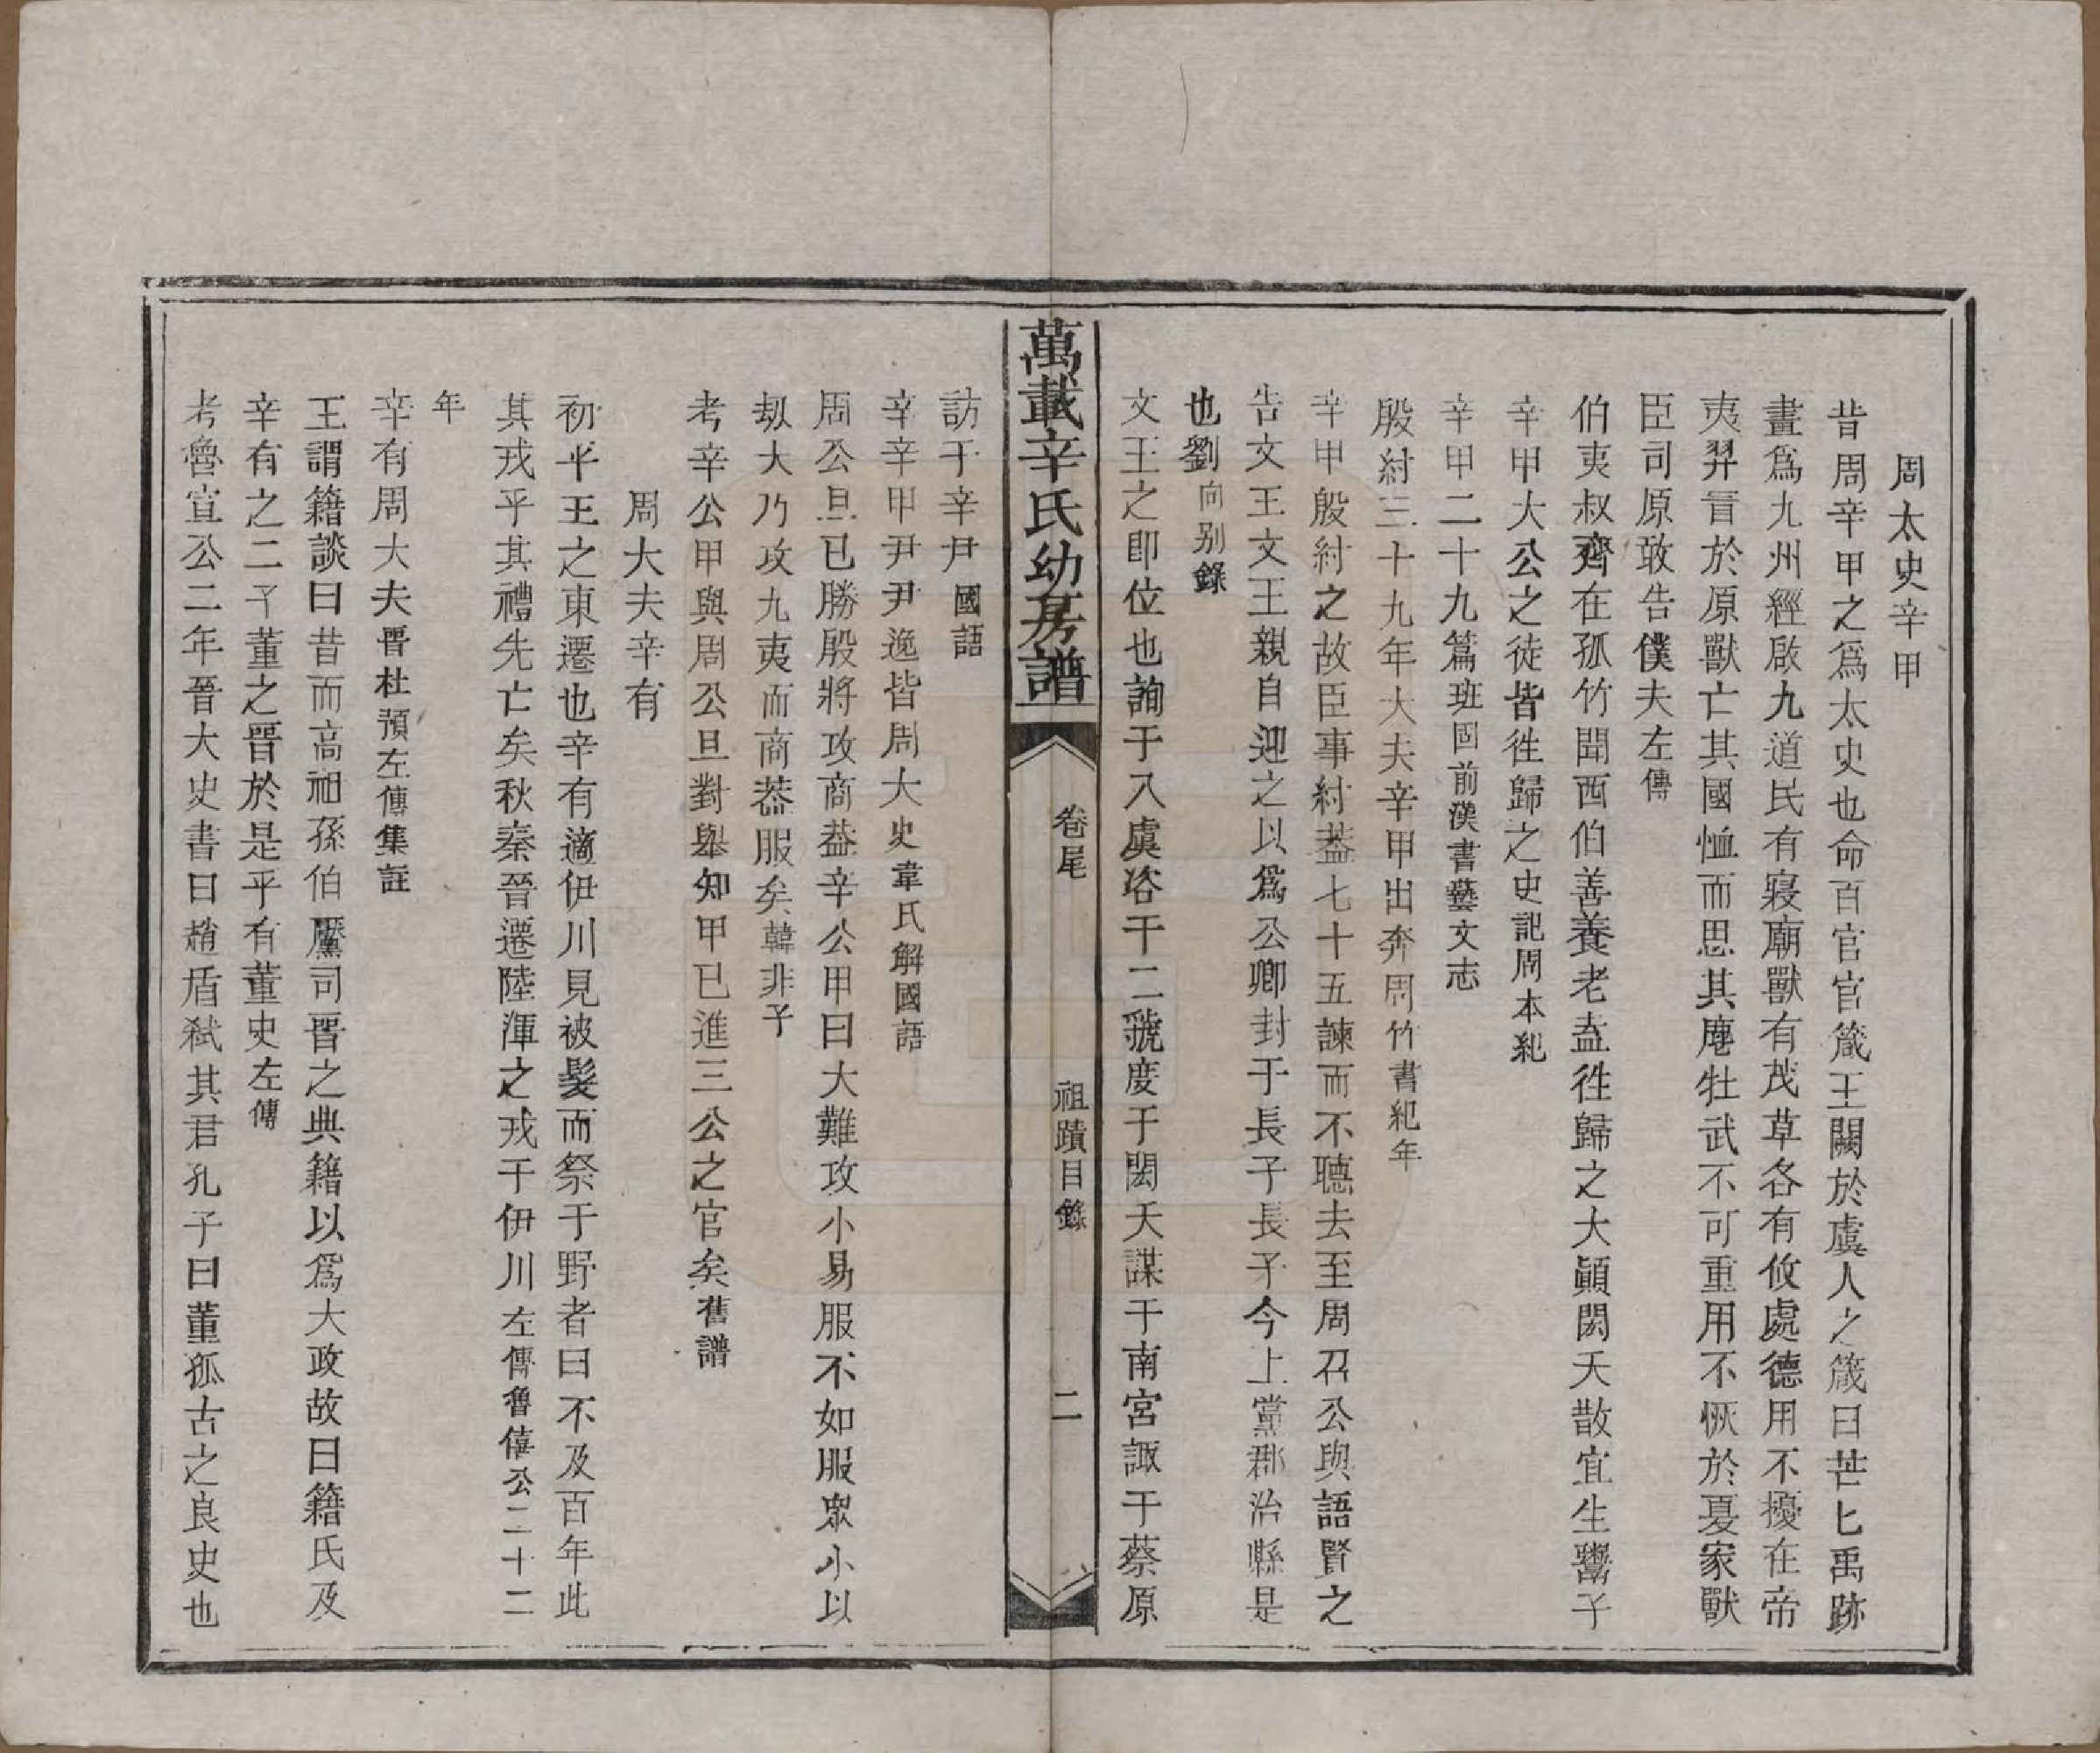 周太史辛甲
昔周辛甲之爲太史也命百官官箴王闕於虞人之箴曰芒匕禹跡
畫爲九州經啟九道民有寢廟獸有茂草各有攸處德用不擾在帝
夷羿冒於原獸亡其國恤而思其麀牡武不可重用不恢於夏家獸
臣司原敢告僕夫左傳
伯夷叔齊在孤竹聞西伯善養老盍徃歸之大顚閎夭散宜生鬻子
辛甲大公之徒皆徃歸之史記周本紀
辛甲二十九篇班固前漢書藝文志
殷紂三十九年大夫辛甲出奔周竹書紀年
辛甲殷紂之故臣事紂葢七十五諫而不聽去至周召公與語賢之
告文王文王親自迎之以爲公卿封于長子長子今上黨郡治縣是
也劉向别錄
文王之卽位也詢于八虞咨于二虢度于閎夭謀于南宮諏于蔡原
萬載辛氏幼房譜
卷尾
祖蹟目錄
二
訪于辛尹國語
辛辛甲尹尹逸皆周大史韋氏解國語
周公旦已勝殷將攻商葢辛公甲曰大難攻小易服不如服眾小以
刼大乃攻九夷而商葢服矣韓非子
考辛公甲與周公旦對舉知甲已進三公之官矣舊譜
周大夫辛有
初平王之東遷也辛有適伊川見被髮而祭于野者曰不及百年此
其戎乎其禮先亡矣秋秦晉遷陸渾之戎于伊川左傳魯僖公二十二
年
辛有周大夫晋杜預左傳集註
王謂籍談曰昔而高祖孫伯黶司晋之典籍以爲大政故曰籍氏及
辛有之二子董之晋於是乎有董史左傳
考魯宣公二年晉大史書曰趙盾弑其君孔子曰董狐古之良史也